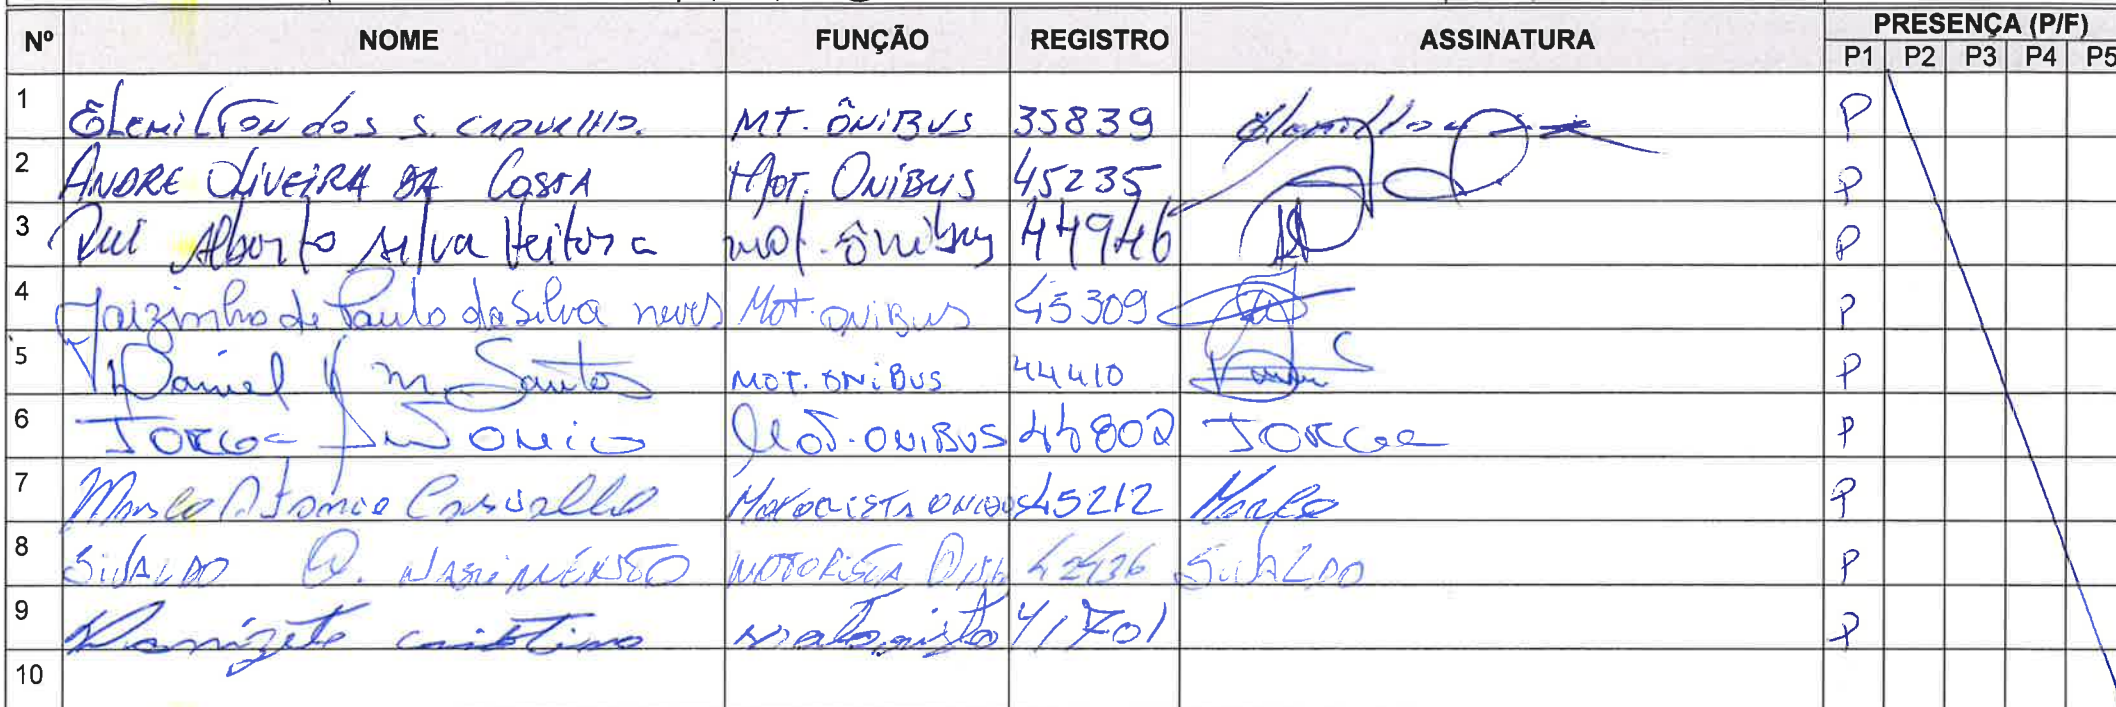 Nº NOME FUNÇÃO REGISTRO ASSINATURA PRESENÇA (P/F)
P1 P2 P3 P4 P5
1 Elemilton dos S. CARVALHO. MT. ÔNiBUS 35839 P
2 ANDRE OLiVEiRA DA COSTA MOT. ONiBUS 45235 P
3 Rui Alberto Silva Heitor a mot. ônibus 44946 P
4 Jaizinho de Paulo da Silva neves Mot. ONiBUS 45309 P
5 Daniel M Santos MOT. ONiBUS 44410 P
6 JORGE ANTONio MOT. ONiBUS 44802 JORGE P
7 Marco Antonio Carvalho MOTORISTA ONIBUS 45212 Marco P
8 SiVALDO O. NASCiMENTO MOTORISTA 42436 SiVALDO P
9 Donizete cristino motorista 41701 P
10